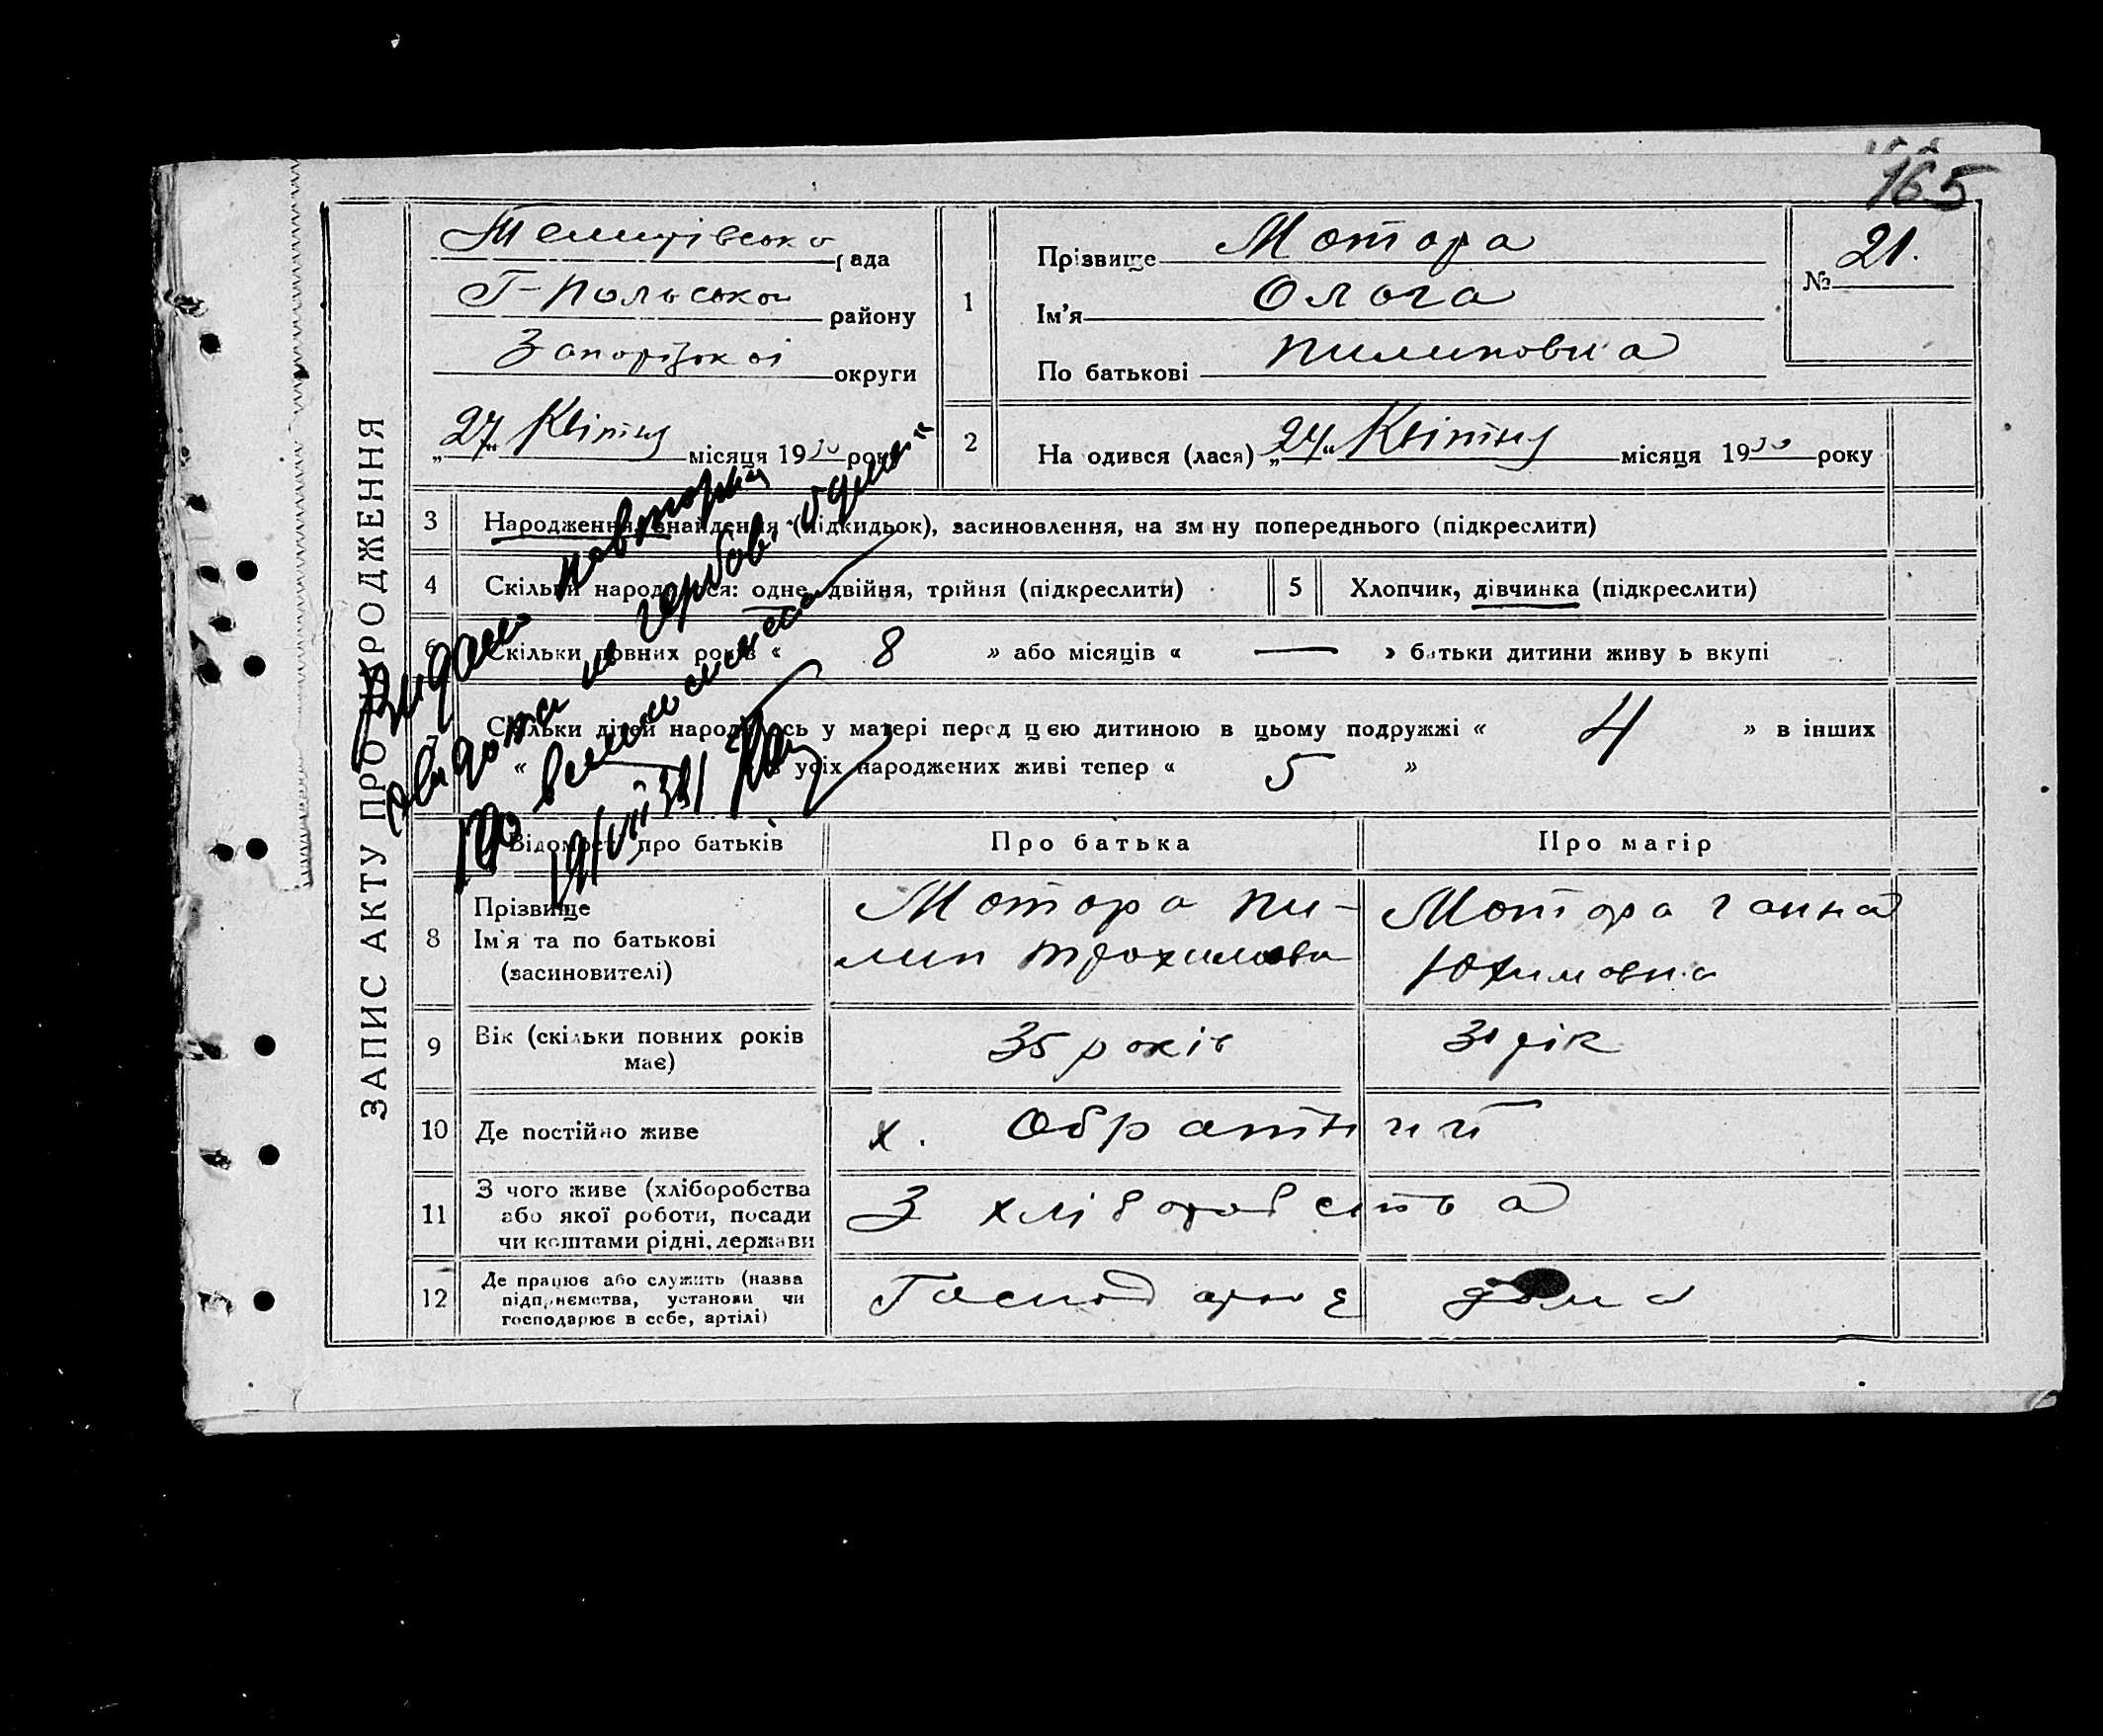 165
Темирівська рада
Г-Польського району
Запорізької округи
„27“ Квітня місяця 1930 року
1
Прізвище Мотора
Ім'я Ольга
По батькові Пилиповна
№ 21.
2
На одився (лася) „24“ Квітня місяця 1930 року
ЗАПИС АКТУ ПРО НАРОДЖЕННЯ
3 Народження, знайдення (підкидьок), засиновлення, на зм ну попереднього (підкреслити)
4 Скільки народилося: одне, двійня, трійня (підкреслити)
5 Хлопчик, дівчинка (підкреслити)
6 Скільки повних років « 8 » або місяців « — » батьки дитини живу ь вкупі
Скільки дітей народилось у матері перед цією дитиною в цьому подружжі « 4 » в інших
« — » з усіх народжених живі тепер « 5 »
Видано повторн
свідоцтво на гербов.
про
19/VII 31
Відомості про батьків
Про батька
Про матір
8 Прізвище
Ім'я та по батькові
(засиновителі)
Мотора Пи-
лип Трохимови
Мотора Ганна
Юхимовна
9 Вік (скільки повних років
має)
35 років
31 рік
10 Де постійно живе
х. Обратний
11 З чого живе (хліборобства
або якої роботи, посади
чи коштами рідні, держави
З хліборобства
12 Де працює або служить (назва
підприємства, установи чи
господарює в себе, артілі)
Господарює дома